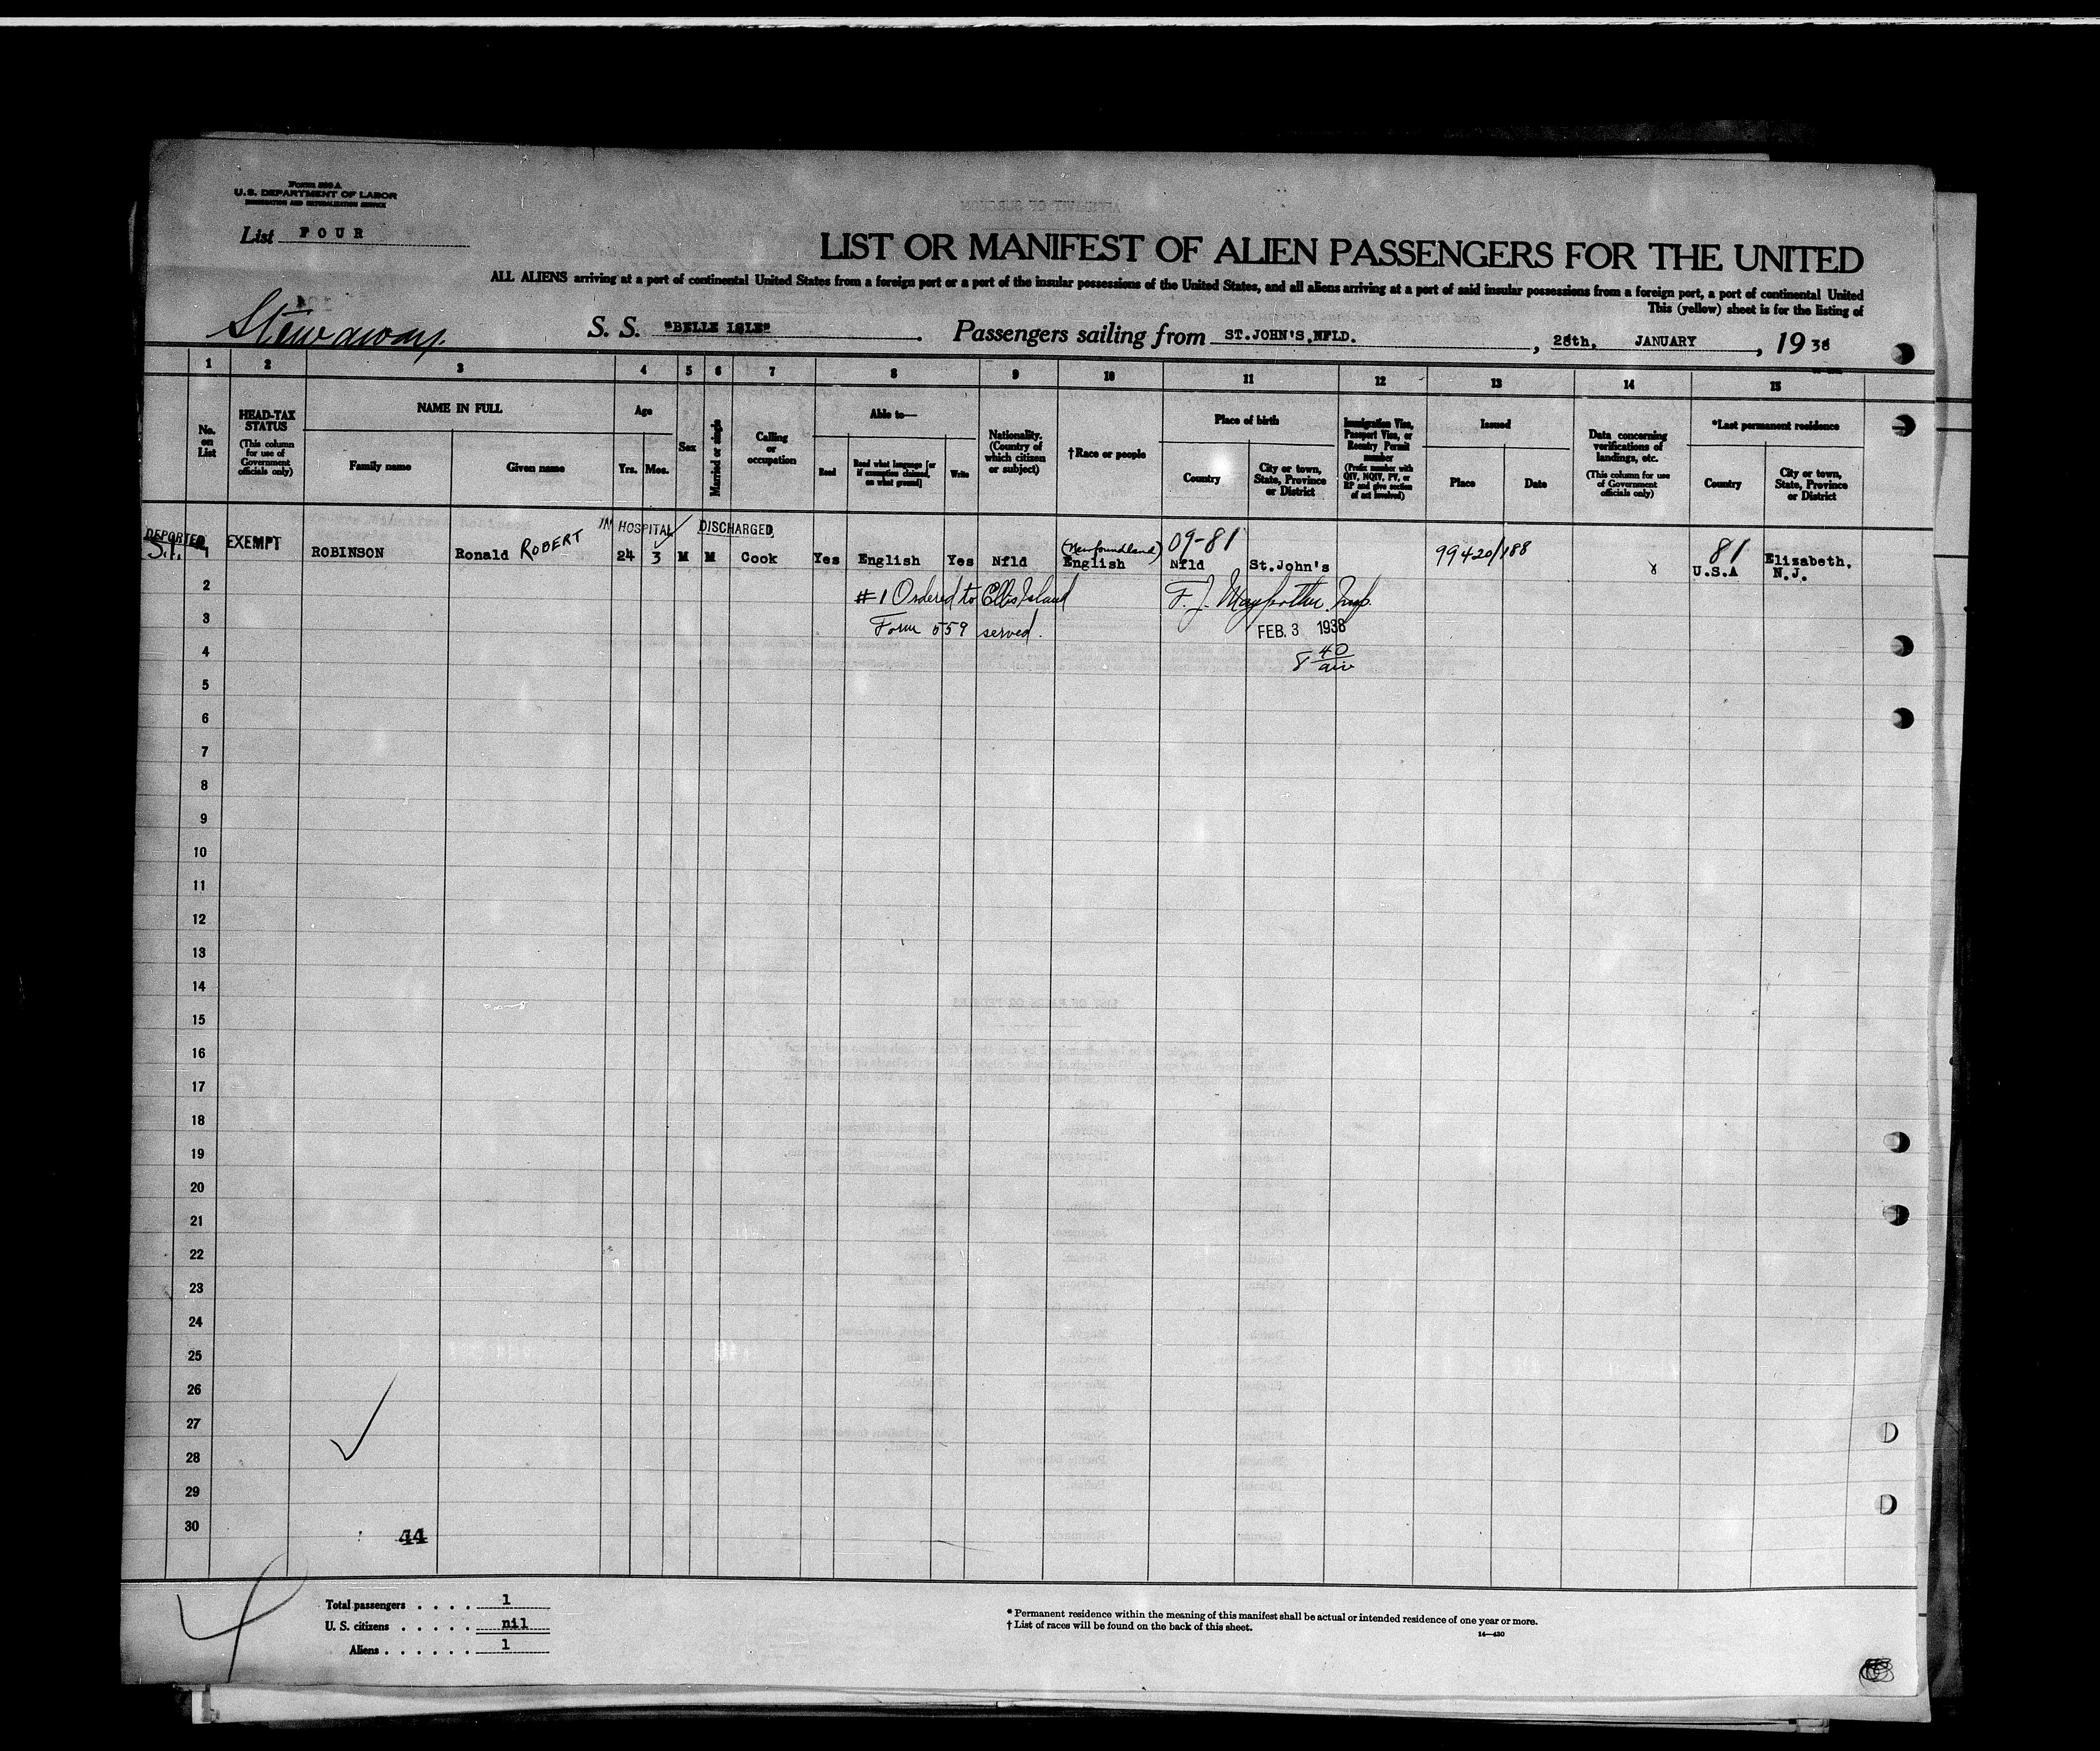 Form 500 A
U.S. DEPARTMENT OF LABOR
IMMIGRATION AND NATURALIZATION SERVICE
List FOUR
LIST OR MANIFEST OF ALIEN PASSENGERS FOR THE UNITED
ALL ALIENS arriving at a port of continental United States from a foreign port or a port of the insular possessions of the United States, and all aliens arriving at a port of said insular possessions from a foreign port, a port of continental United
This (yellow) sheet is for the listing of
Stowaway.
S. S. "BELLE ISLE" . Passengers sailing from ST.JOHN'S,NFLD. , 28th, JANUARY , 19 38
1 2 3 4 5 6 7 8 9 10 11 12 13 14 15
No. on List
HEAD-TAX STATUS
(This column for use of Government officials only)
NAME IN FULL
Family name
Given name
Age
Yrs. Mos.
Sex
Married or single
Calling or occupation
Able to—
Read
Read what language [or if exemption claimed, on what ground]
Write
Nationality. (Country of which citizen or subject)
†Race or people
Place of birth
Country
City or town, State, Province or District
Immigration Visa, Passport Visa, or Reentry Permit number
(Prefix number with QIV, NQIV, PV, or RP and give section of act involved)
Issued
Place
Date
Data concerning verifications of landings, etc.
(This column for use of Government officials only)
*Last permanent residence
Country
City or town, State, Province or District
IN HOSPITAL DISCHARGED
DEPORTED
S.I. 1 EXEMPT ROBINSON Ronald ROBERT 24 3 M M Cook Yes English Yes Nfld (Newfoundland) English 09-81 Nfld St.John's 99420/188 81 U.S.A Elizabeth, N.J.
2 #1 Ordered to Ellis Island F. J. Insp.
3 Form 559 served. FEB. 3 1938
4 8 40
5
6
7
8
9
10
11
12
13
14
15
16
17
18
19
20
21
22
23
24
25
26
27
28
29
30
44
Total passengers . . . . 1
U. S. citizens . . . . . nil
Aliens . . . . . . 1
* Permanent residence within the meaning of this manifest shall be actual or intended residence of one year or more.
† List of races will be found on the back of this sheet.
14—430